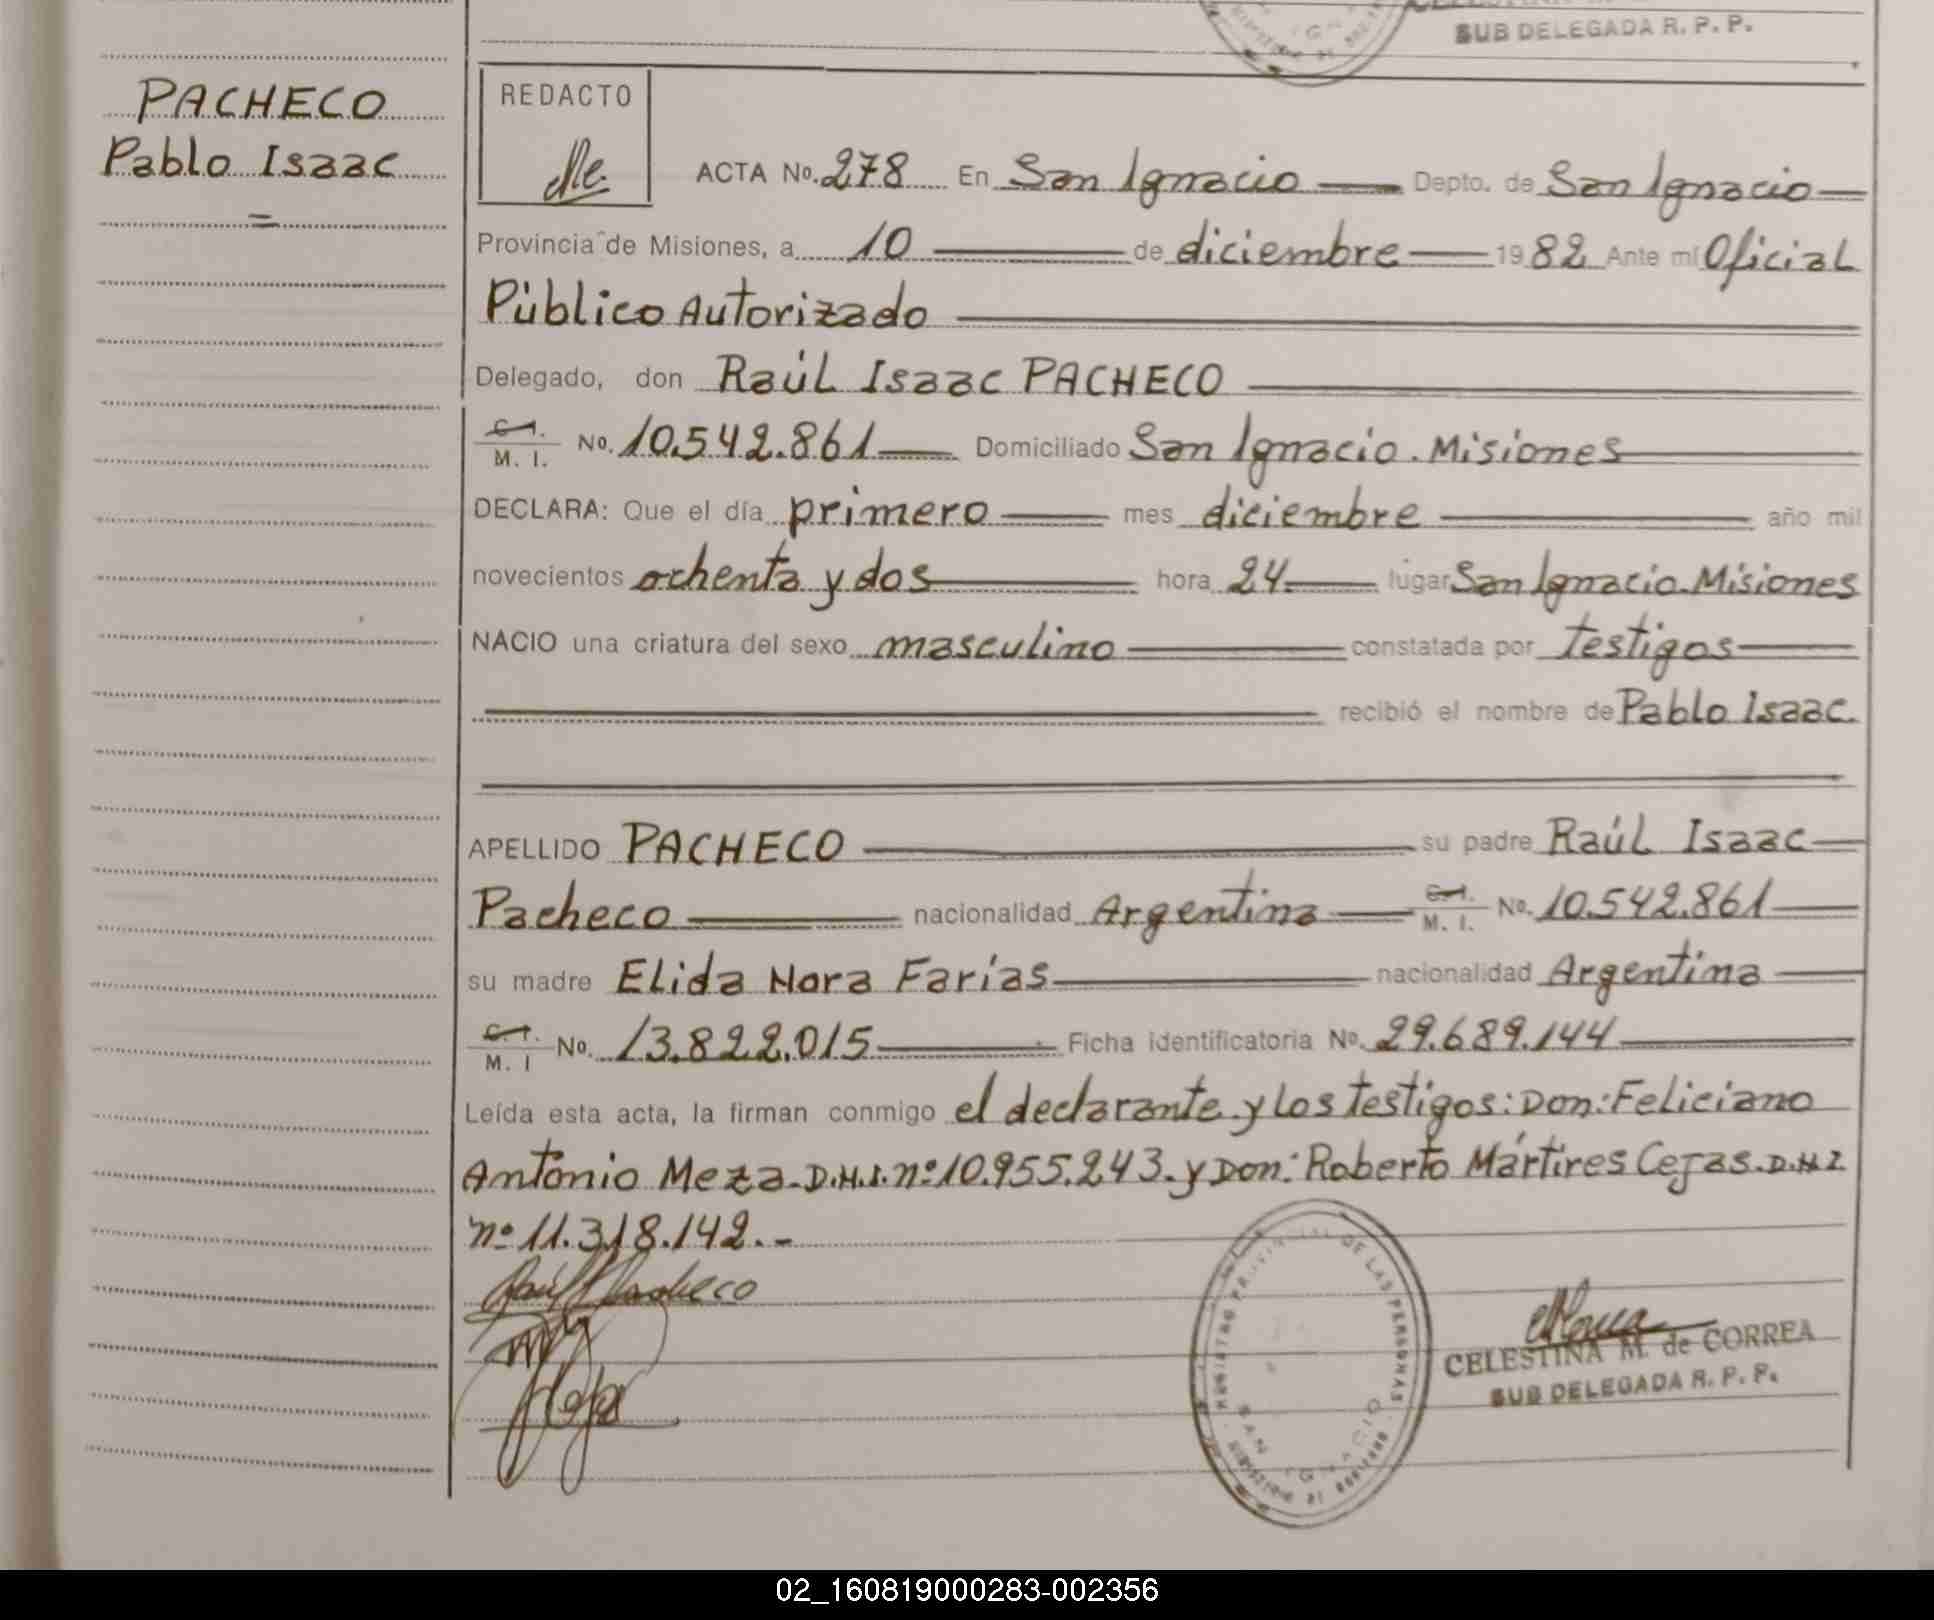 SUB DELEGADA R. P. P.
PACHECO
Pablo Isaac
=
REDACTO
ACTA No. 278 En San Ignacio Depto. de San Ignacio
Provincia de Misiones, a 10 de diciembre 1982 Ante mí Oficial
Público Autorizado
Delegado, don Raúl Isaac PACHECO
C.I. / M. I. No. 10.542.861 Domiciliado San Ignacio. Misiones
DECLARA: Que el día primero mes diciembre año mil
novecientos ochenta y dos hora 24 lugar San Ignacio. Misiones
NACIO una criatura del sexo masculino constatada por testigos
recibió el nombre de Pablo Isaac.
APELLIDO PACHECO su padre Raúl Isaac
Pacheco nacionalidad Argentina C.I. / M. I. No. 10.542.861
su madre Elida Nora Farías nacionalidad Argentina
C.I. / M. I No. 13.822.015 Ficha identificatoria No. 29.689.144
Leída esta acta, la firman conmigo el declarante y los testigos: Don: Feliciano
Antonio Meza. D.N.I. nº 10.955.243. y Don: Roberto Mártires Cejas. D.N.I.
nº 11.318.142.-
Raúl I Pacheco
REGISTRO PROVINCIAL DE LAS PERSONAS
SAN IGNACIO
CELESTINA M. de CORREA
SUB DELEGADA R. P. P.
02_160819000283-002356